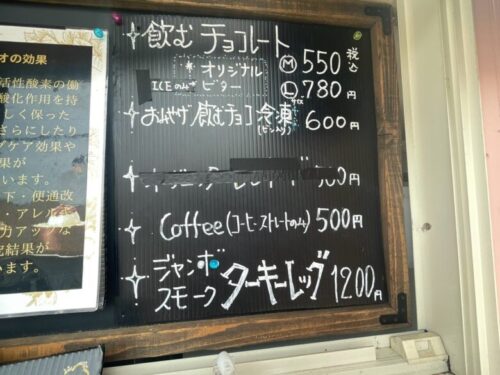 オの効果
活性酸素の働
酸化作用を持
しく保った
さらにしたり
グケア効果や
果が
います。
下・便通改
・アレルギ
力アップな
究結果が
ています。
飲む チョコレート Ⓜ 550 税込
*オリジナル
ICEのみ* ビター Ⓛ 780円
おみやげ 飲むチョコ 冷凍 600円
500円
Coffee (コーヒーストレートのみ) 500円
ジャンボ
スモーク ターキーレッグ 1200円